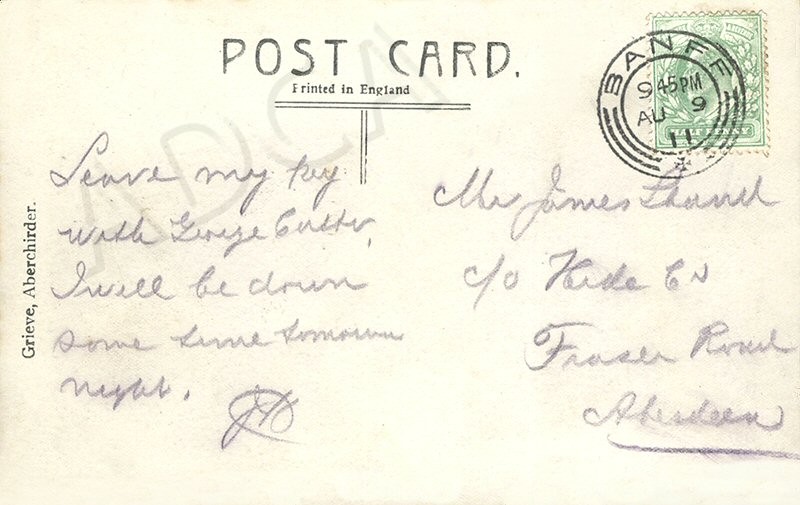 POST CARD.
Printed in England
BANFF
945PM
AU 9
11
HALF PENNY
Leave my key
with George
I will be down
some time tomorrow
night.
Mr James Shand
c/o Hide Co
Fraser Road
Aberdeen
Grieve, Aberchirder.
ADCA